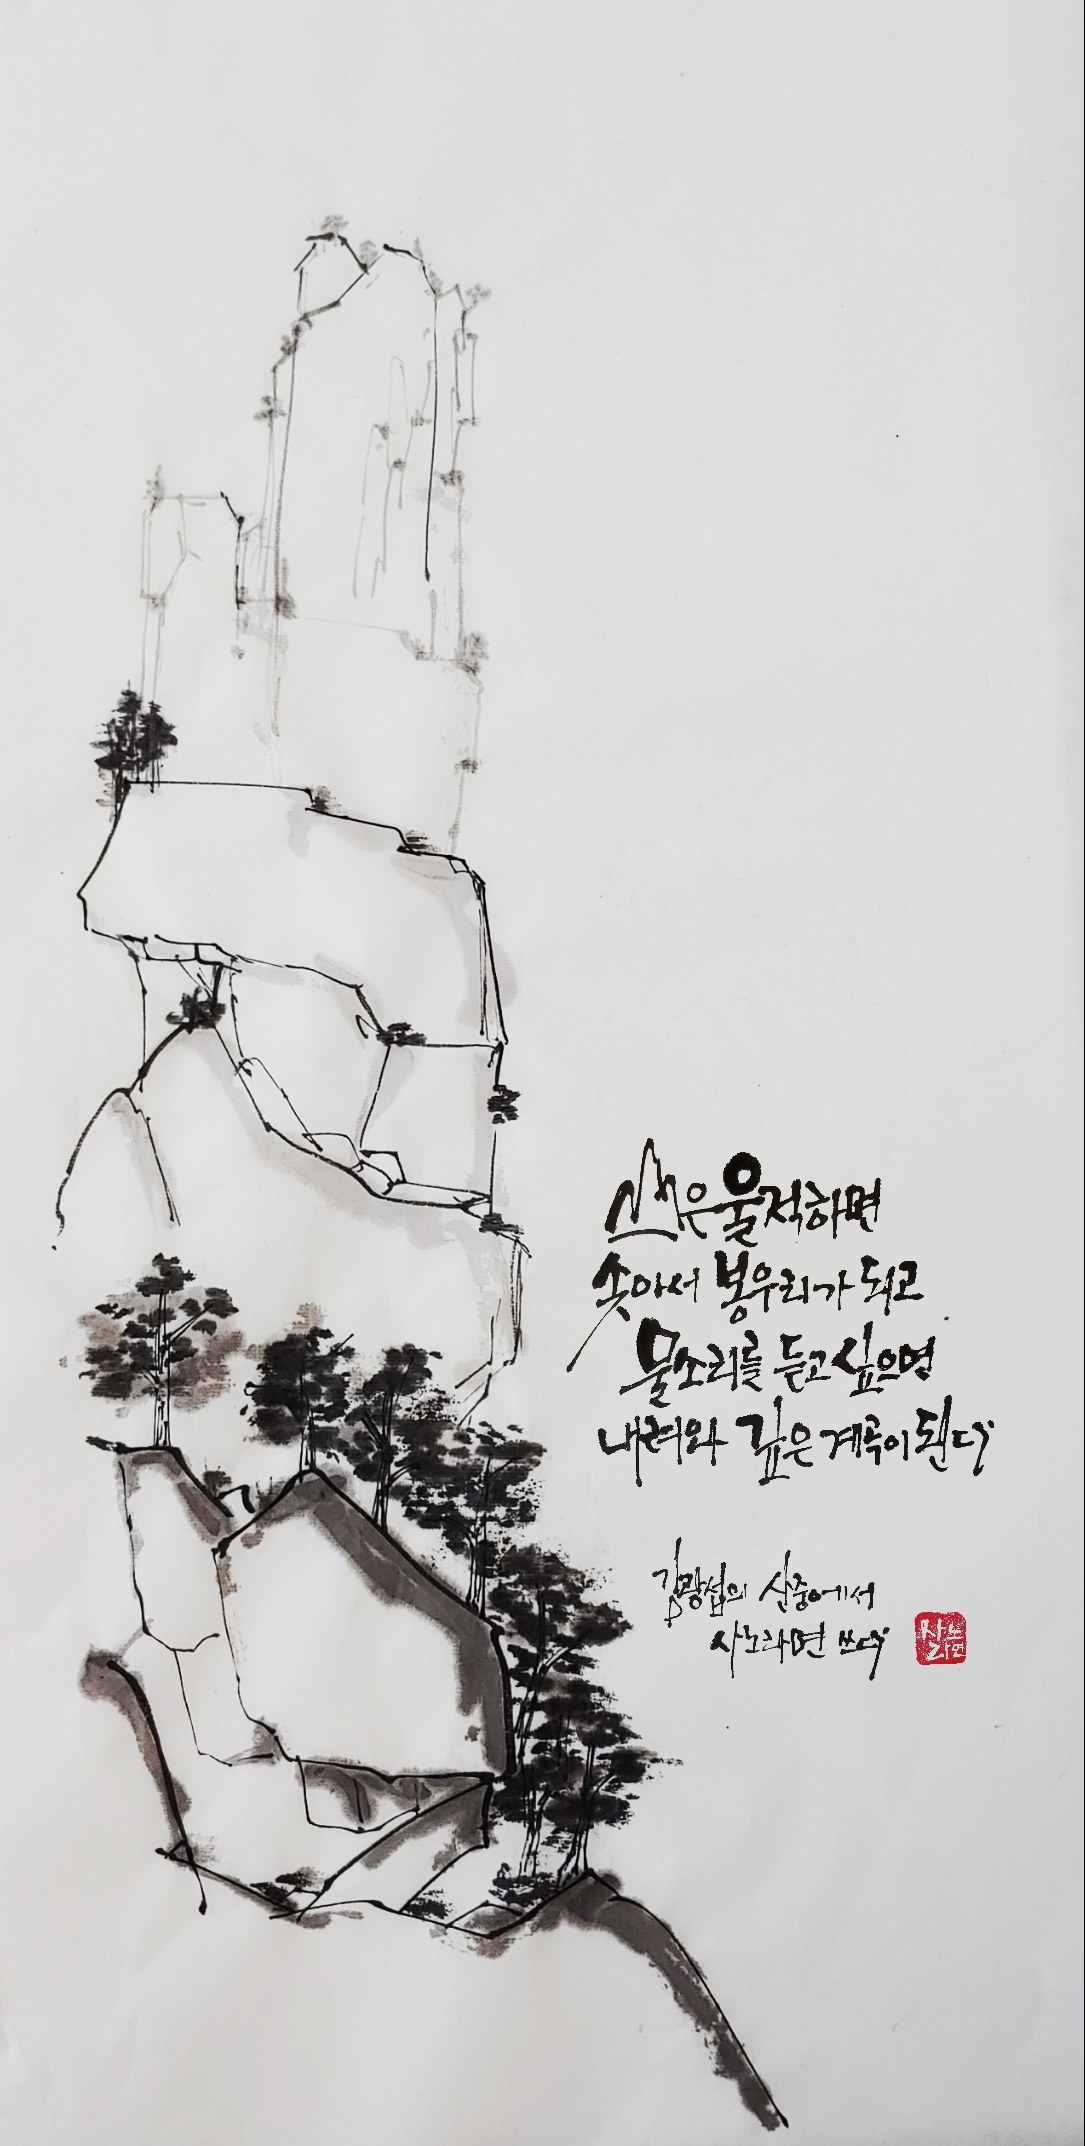 산은 울적하면
솟아서 봉우리가 되고
물소리를 듣고 싶으면
내려와 깊은 계곡이 된다
김광섭의 산중에서
사노라면 쓰다
사노
라면